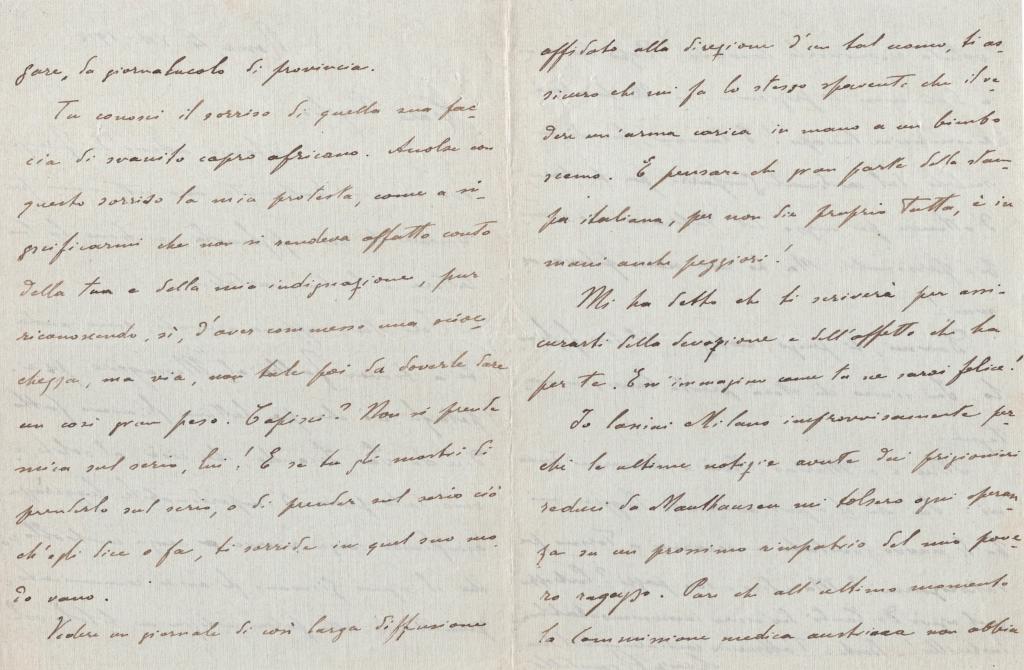 gare, da giornalucolo di provincia.
Tu conosci il sorriso di quella sua fac-
cia di svanito capro africano. Accolse con
questo sorriso la mia protesta, come a si-
gnificarmi che non si rendeva affatto conto
della tua e della mia indignazione, pur
riconoscendo, sì, d'aver commesso una scioc-
chezza, ma via, non tale poi da doverle dare
un così gran peso. Capisci? Non si prende
mica sul serio, lui! E se tu gli mostri di
prenderlo sul serio, o di prender sul serio ciò
ch'egli dice o fa, ti sorride in quel suo mo-
do vano.
Vedere un giornale di così larga diffusione
affidato alla direzione d'un tal uomo, ti as-
sicuro che mi fa lo stesso spavento che il ve-
dere un'arma carica in mano a un bimbo
scemo. E pensare che gran parte della stam-
pa italiana, per non dir proprio tutta, è in
mani anche peggiori!
Mi ha detto che ti scriverà per assi-
curarti della devozione e dell'affetto che ha
per te. E m'immagino come tu ne sarai felice!
Io lasciai Milano improvvisamente per-
chè le ultime notizie avute dai prigionieri
reduci da Mauthausen mi tolsero ogni speran-
za su un prossimo rimpatrio del mio pove-
ro ragazzo. Pare che all'ultimo momento
la Commissione medica austriaca non abbia